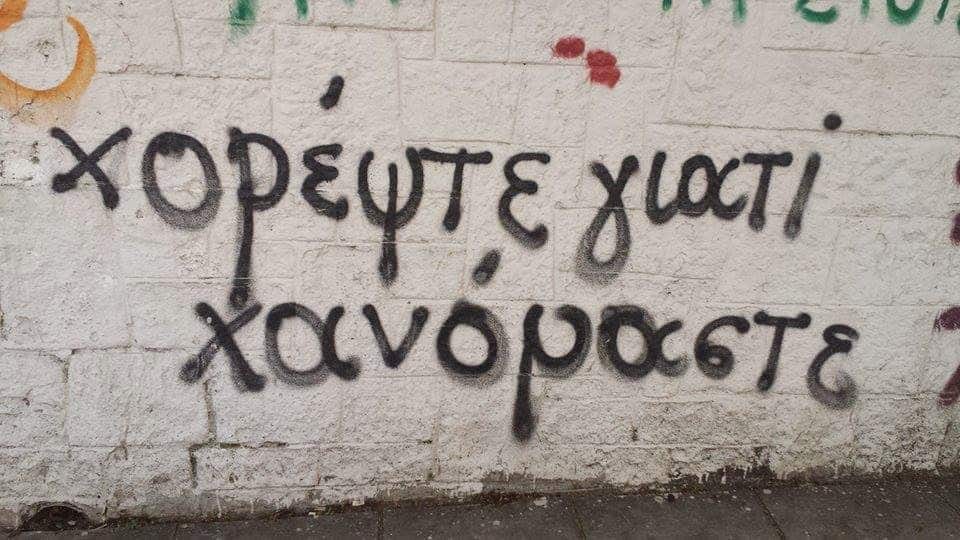 χορέψτε γιατί
χανόμαστε